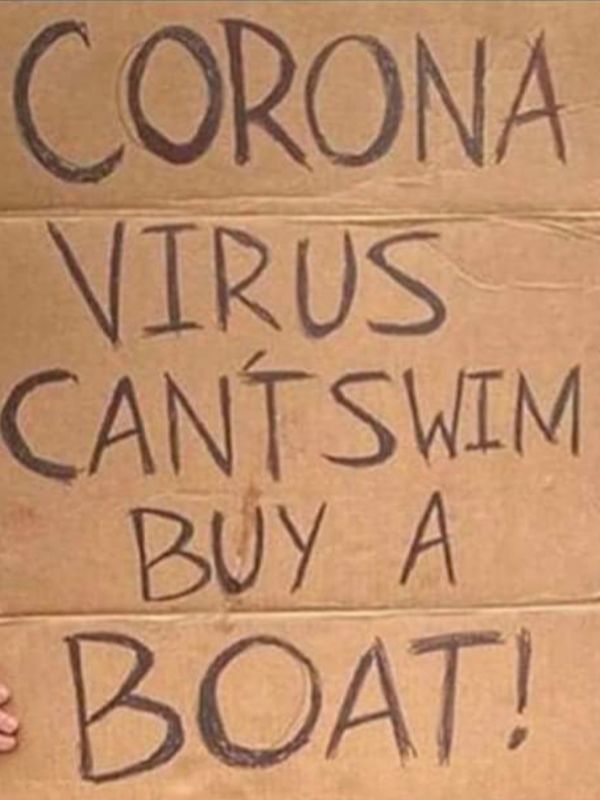 CORONA
VIRUS
CAN'T SWIM
BUY A
BOAT!